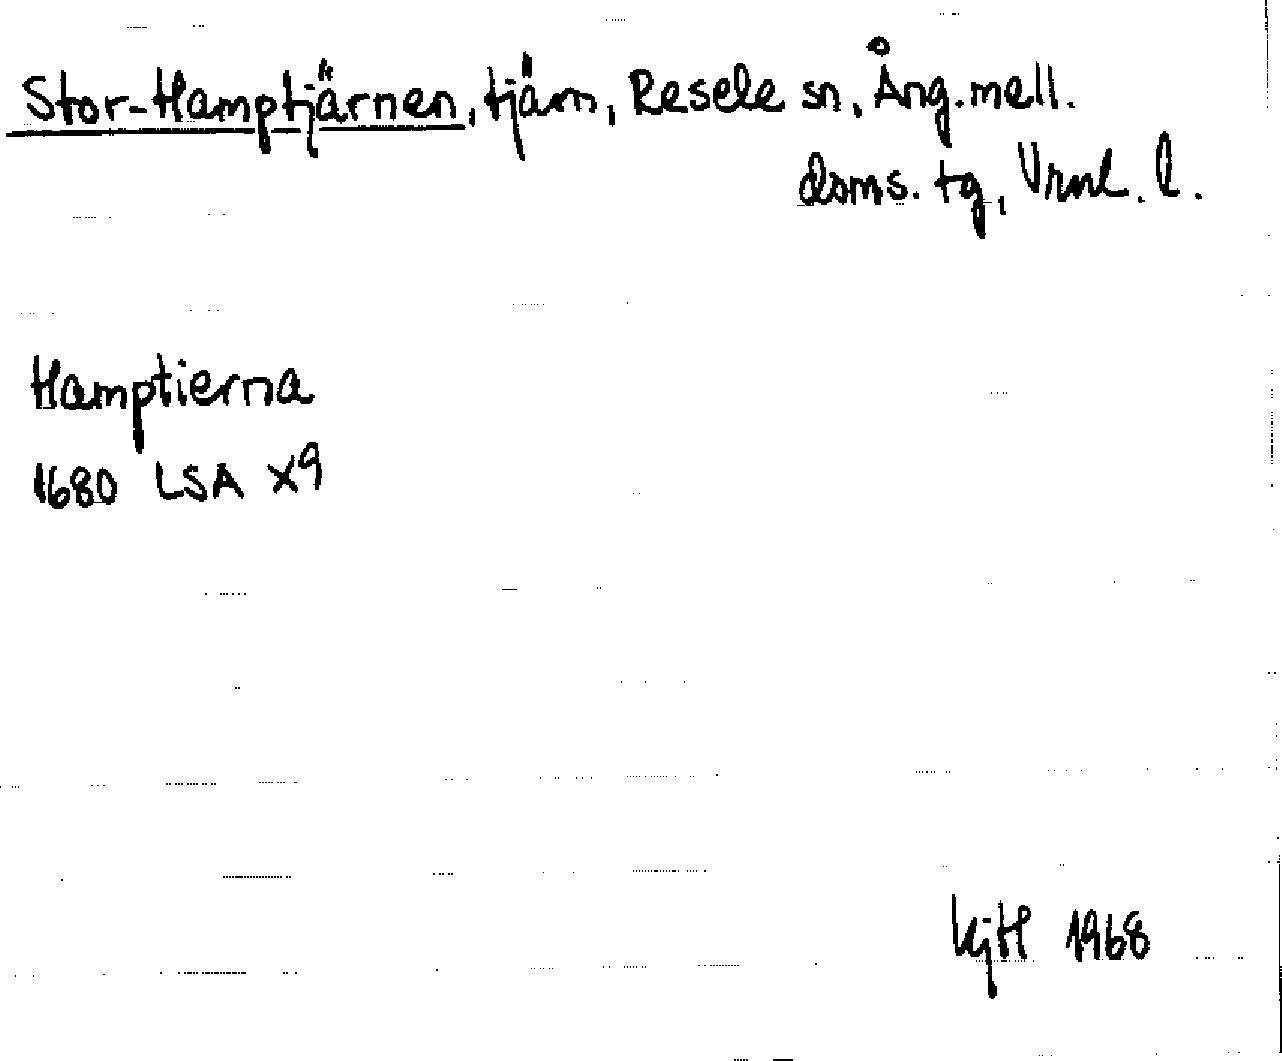 Stor-Hamptjärnen, tjärn, Resele sn, Ång.mell.
doms. tg, Vrnl. l.
Hamptierna
1680 LSA X9
KjH 1968